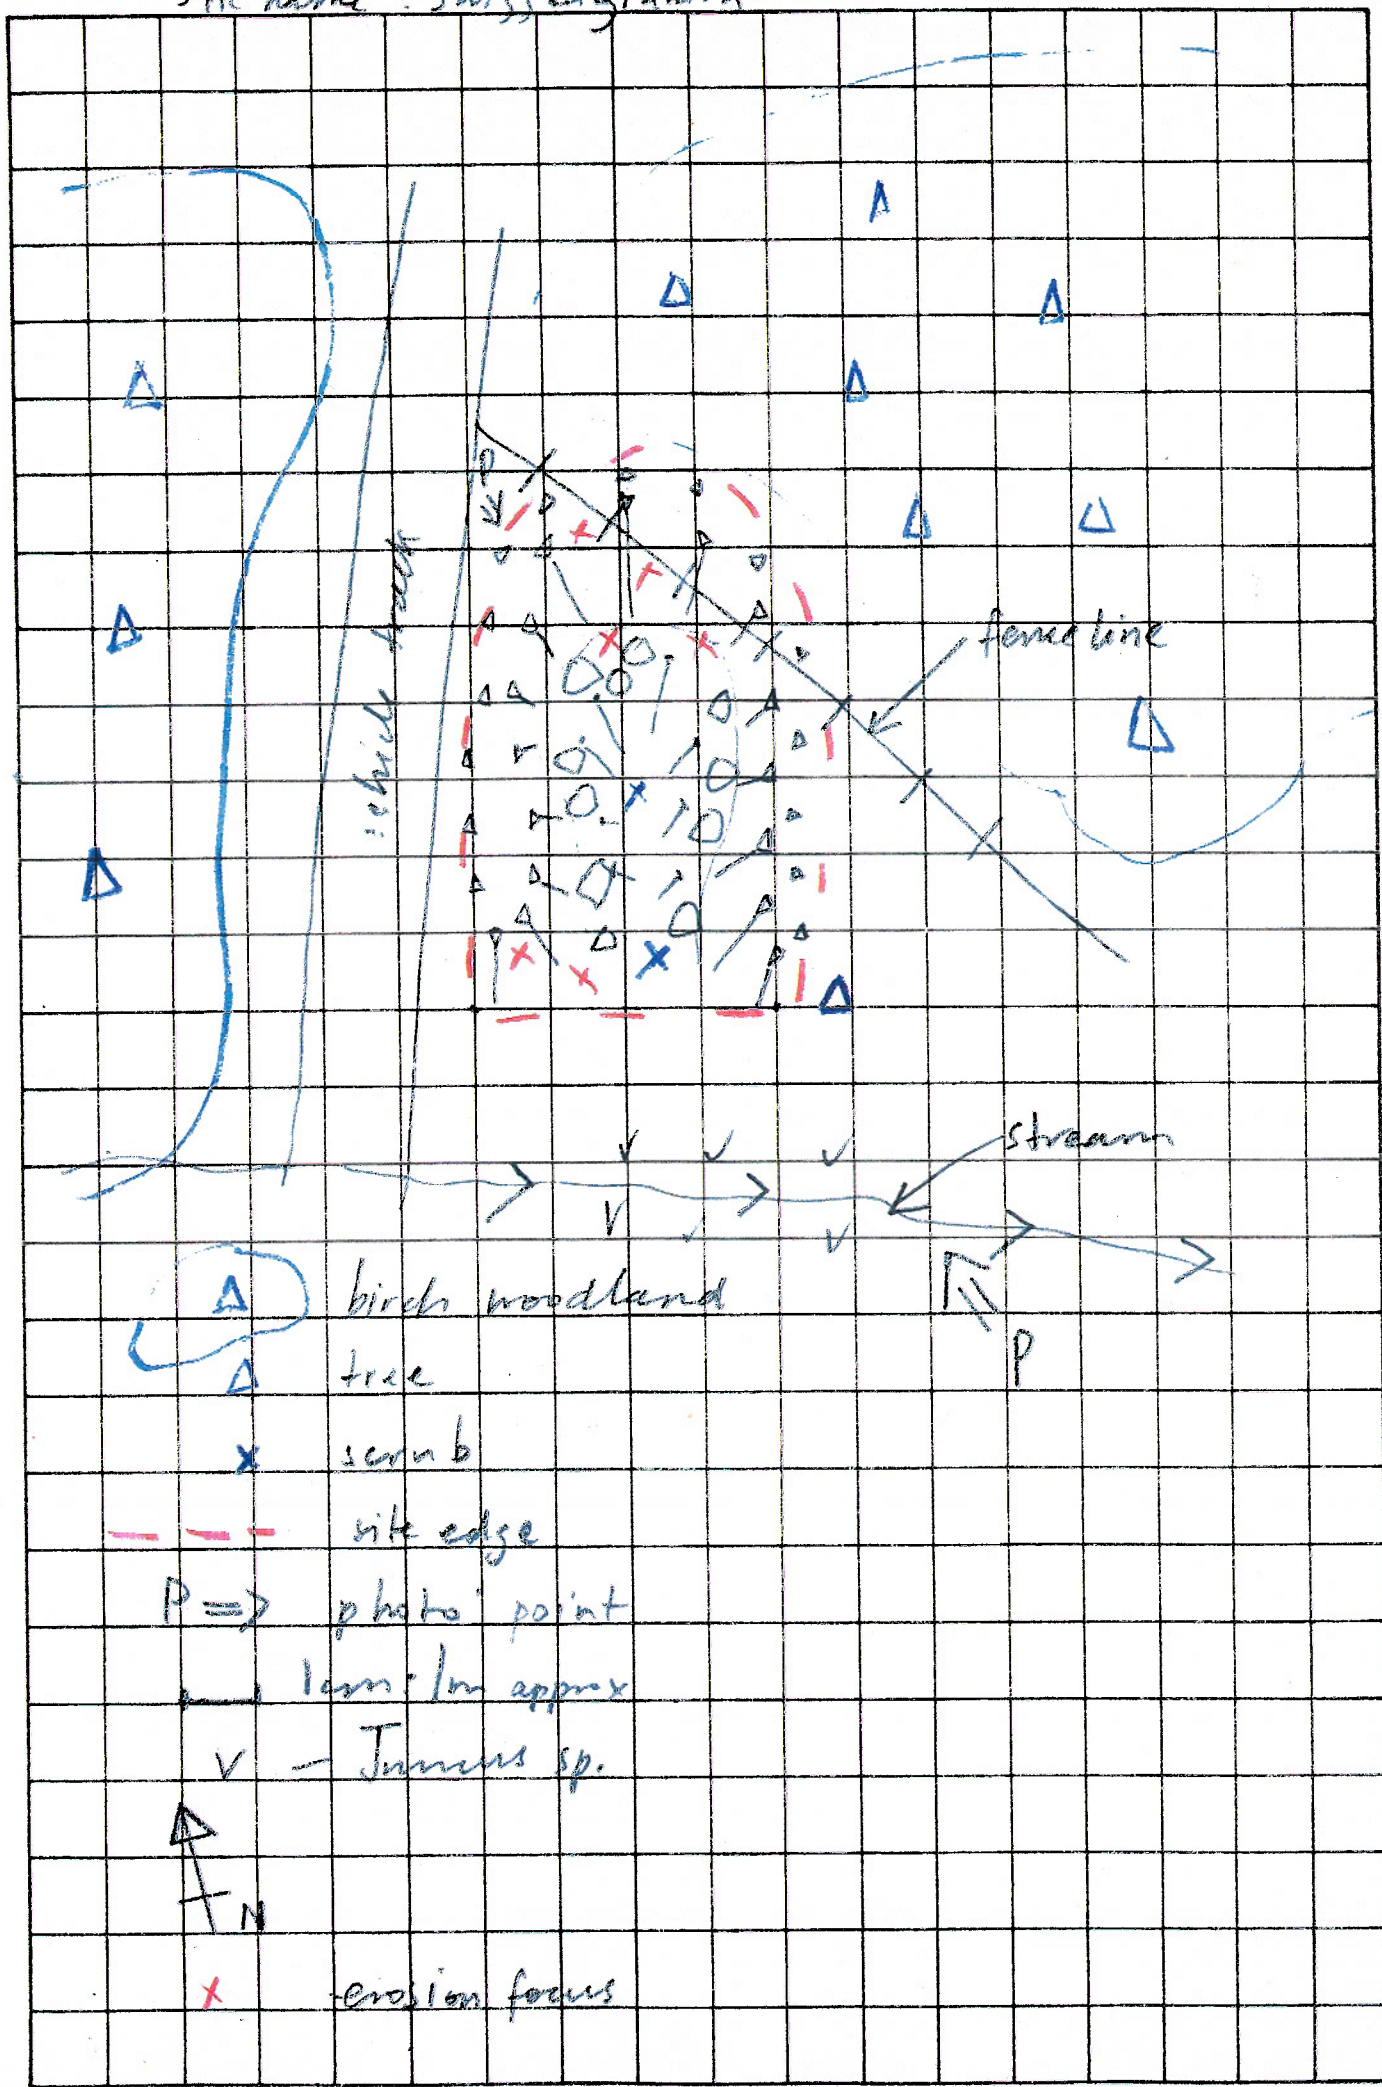 site name:
P
vehicle track
fence line
stream
P
birch woodland
tree
scrub
site edge
P => photo point
1cm: 1m approx
V - Juncus sp.
N
x erosion focus